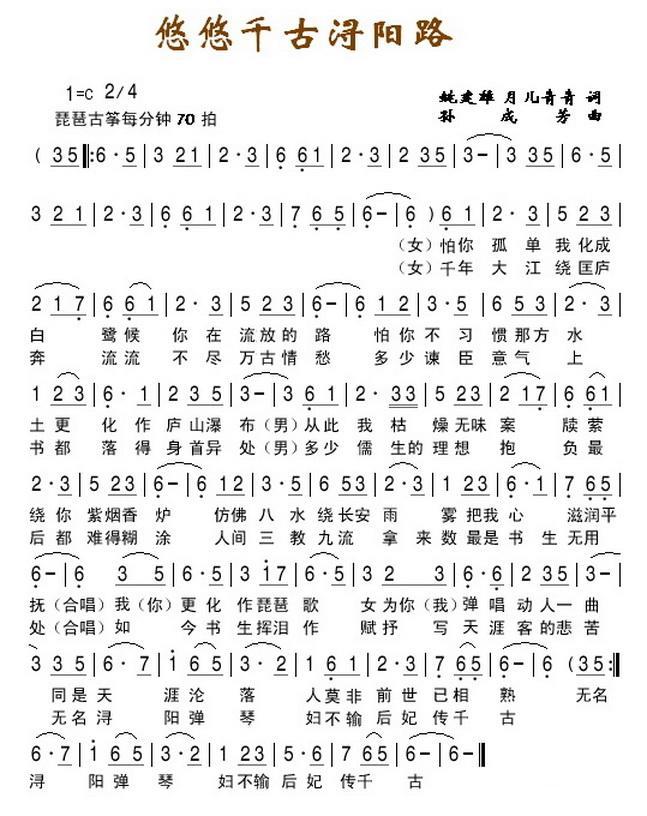 悠悠千古浔阳路
1=C 2/4
姚建雄 月儿青青 词
琵琶古筝每分钟 70 拍
孙成芳 曲
( 3 5 ‖: 6 · 5 | 3 2 1 | 2 · 3 | 6 6 1 | 2 · 3 | 2 3 5 | 3 − | 3 3 5 | 6 · 5 |
3 2 1 | 2 · 3 | 6 6 1 | 2 · 3 | 7 6 5 | 6 − | 6 ) 6 1 | 2 · 3 | 5 2 3 |
（女）怕你 孤 单 我 化成
（女）千年 大 江 绕 匡庐
2 1 7 | 6 6 1 | 2 · 3 | 2 3 5 | 6 − | 6 1 2 | 3 · 5 | 6 5 3 | 2 · 3 |
白 鹭候 你 在 流放的 路 怕你 不 习 惯那方 水
奔 流流 不 尽 万古情 愁 多少 谏 臣 意气 上
1 2 3 | 6 · 1 | 2 3 5 | 3 − | 3 6 1 | 2 · 3 3 | 5 2 3 | 2 1 7 | 6 6 1 |
土更 化 作 庐山瀑 布（男）从此 我 枯 燥无味 案 牍萦
书都 落 得 身首异 处（男）多少 儒 生的 理想 抱 负最
2 · 3 | 5 2 3 | 6 − | 6 1 2 | 3 · 5 | 6 5 3 | 2 · 3 | 2 2 3 | 6 · 1 | 7 6 5 |
绕 你 紫烟香 炉 仿佛 八 水 绕长安 雨 雾 把我 心 滋润平
后 都 难得糊 涂 人间 三 教 九流 拿 来 数最 是 书 生 无用
6 − | 6 3 5 | 6 · 5 | 3 1 7 | 6 · 5 | 3 2 3 | 6 · 1 | 2 3 5 | 3 − |
抚（合唱）我（你）更 化 作琵琶 歌 女 为你（我）弹 唱 动人一 曲
处（合唱）如 今 书 生挥泪 作 赋 抒 写 天 涯 客的悲 苦
3 3 5 | 6 · 7 | 1 6 5 | 3 · 2 | 1 6 1 | 2 · 3 | 7 6 5 | 6 − | 6 ( 3 5 :‖
同是 天 涯 沦 落 人 莫非 前 世 已 相 熟 无名
无名 浔 阳 弹 琴 妇 不输 后 妃 传千 古
6 · 7 | 1 6 5 | 3 · 2 | 1 6 1 | 2 · 3 | 7 6 5 | 6 − | 6 − ‖
浔 阳 弹 琴 妇 不输 后 妃 传千 古